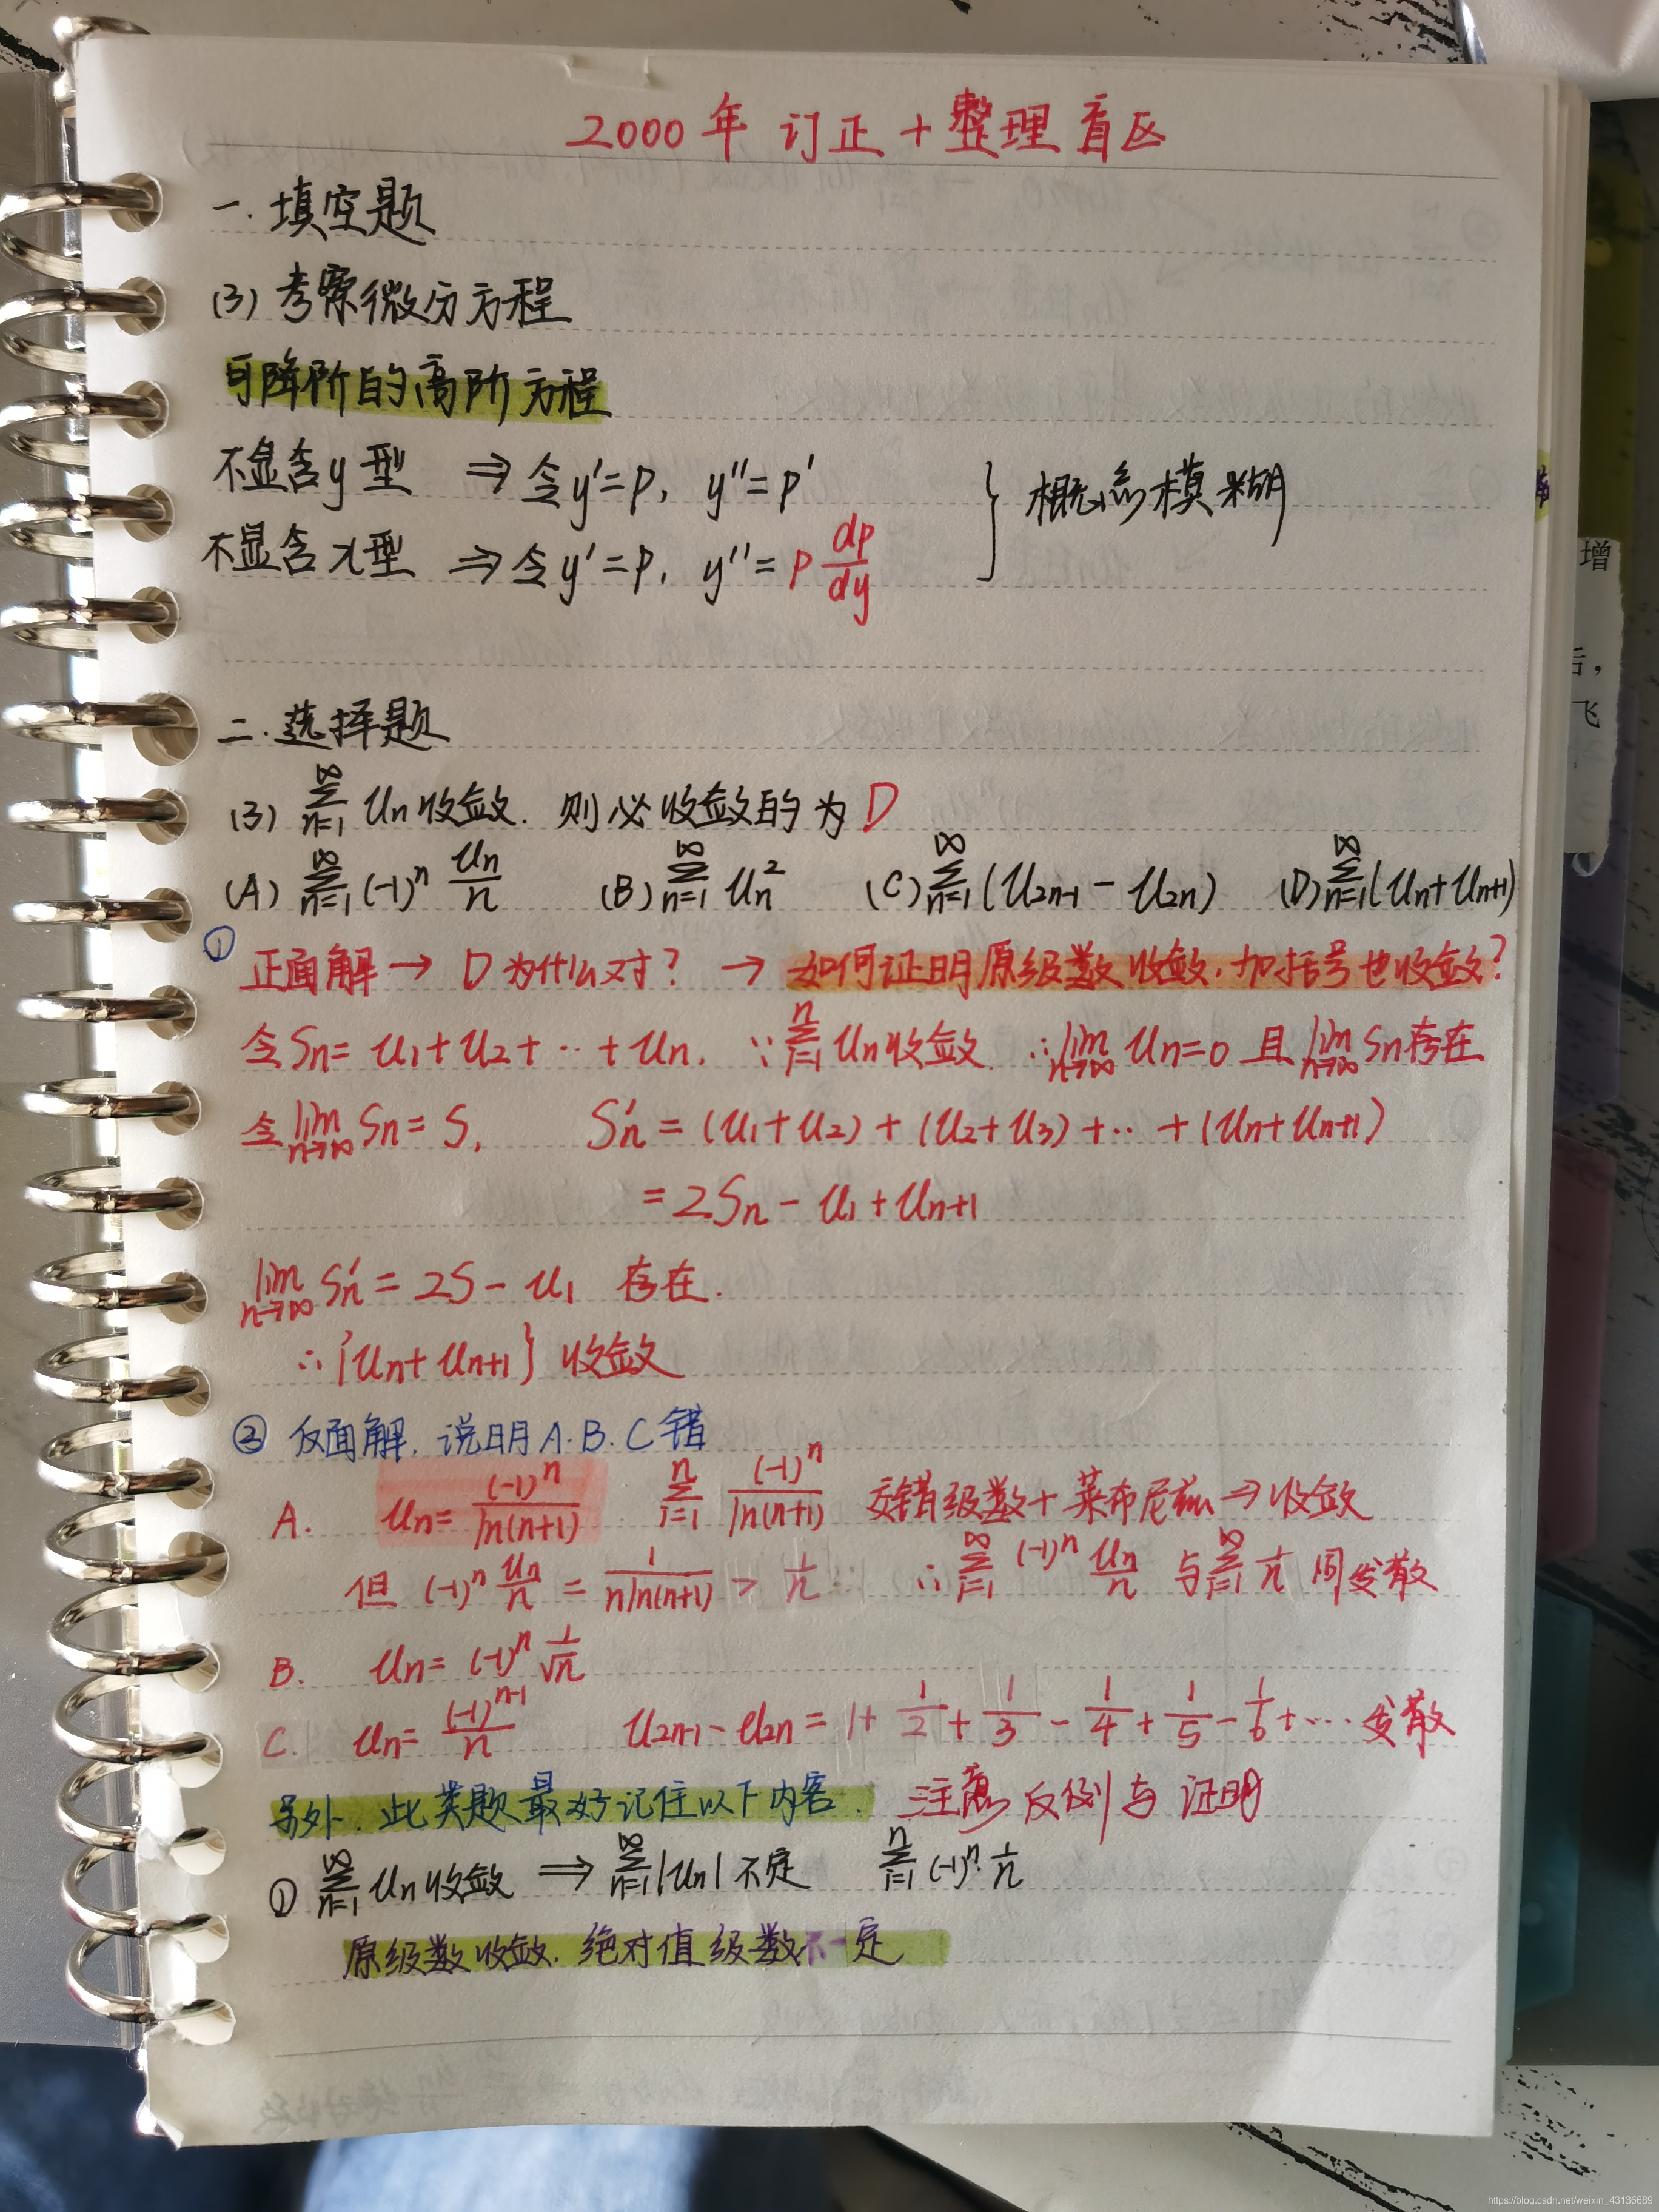 2000年 订正+整理盲区
一. 填空题
(3) 考察微分方程
可降阶的高阶方程
不显含y型 ⇒ 令y'=p, y''=p'
不显含x型 ⇒ 令y'=p, y''=p dp/dy
} 概念模糊
二. 选择题
(3) ∑_{n=1}^{∞} Un 收敛. 则必收敛的为 D
(A) ∑_{n=1}^{∞} (-1)^n Un/n (B) ∑_{n=1}^{∞} Un² (C) ∑_{n=1}^{∞} (U2n-1 - U2n) (D) ∑_{n=1}^{∞} (Un+Un+1)
① 正面解 → D为什么对? → 如何证明原级数收敛.加括号也收敛?
令Sn= U1+U2+…+Un. ∵ ∑_{i=1}^{n} Un收敛 ∴ lim_{n→∞} Un=0 且 lim_{n→∞} Sn存在
令 lim_{n→∞} Sn= S, Sn' = (U1+U2)+(U2+U3)+…+(Un+Un+1)
= 2Sn - U1 + Un+1
lim_{n→∞} Sn' = 2S - U1 存在.
∴ {Un+Un+1} 收敛
② 反面解. 说明A.B.C错
A. Un= (-1)^n/ln(n+1) ∑_{i=1}^{n} (-1)^n/ln(n+1) 交错级数+莱布尼兹⇒收敛
但 (-1)^n Un/n = 1/(n ln(n+1)) > 1/n ∴ ∑_{i=1}^{∞} (-1)^n Un/n 与 ∑_{i=1}^{∞} 1/n 同发散
B. Un= (-1)^n 1/√n
C. Un= (-1)^{n-1}/n U2n-1 - U2n = 1+ 1/2 + 1/3 - 1/4 + 1/5 - 1/6 +… 发散
另外. 此类题最好记住以下内容. 注意反例与证明
① ∑_{n=1}^{∞} Un 收敛 ⇒ ∑_{n=1}^{∞} |Un| 不定 ∑_{i=1}^{n} (-1)^n·1/n
原级数收敛. 绝对值级数不一定
增
后,
飞
https://blog.csdn.net/weixin_43136689